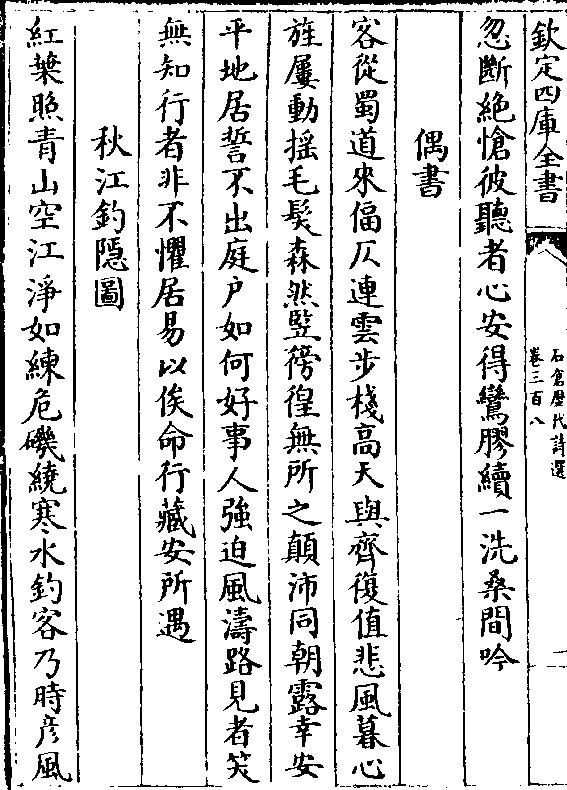 欽定四庫全書
石倉歷代詩選
卷三百八
忽斷絶愴彼聽者心安得鸞膠續一洗桑間吟
偶書
客從蜀道來偪仄連雲步棧高天與齊復值悲風暮心
旌屢動搖毛髮森然竪徬徨無所之顛沛同朝露幸安
平地居誓不出庭户如何好事人強迫風濤路見者笑
無知行者非不懼居易以俟命行藏安所遇
秋江釣隱圖
紅葉照青山空江淨如練危磯繞寒水釣客乃時彦風